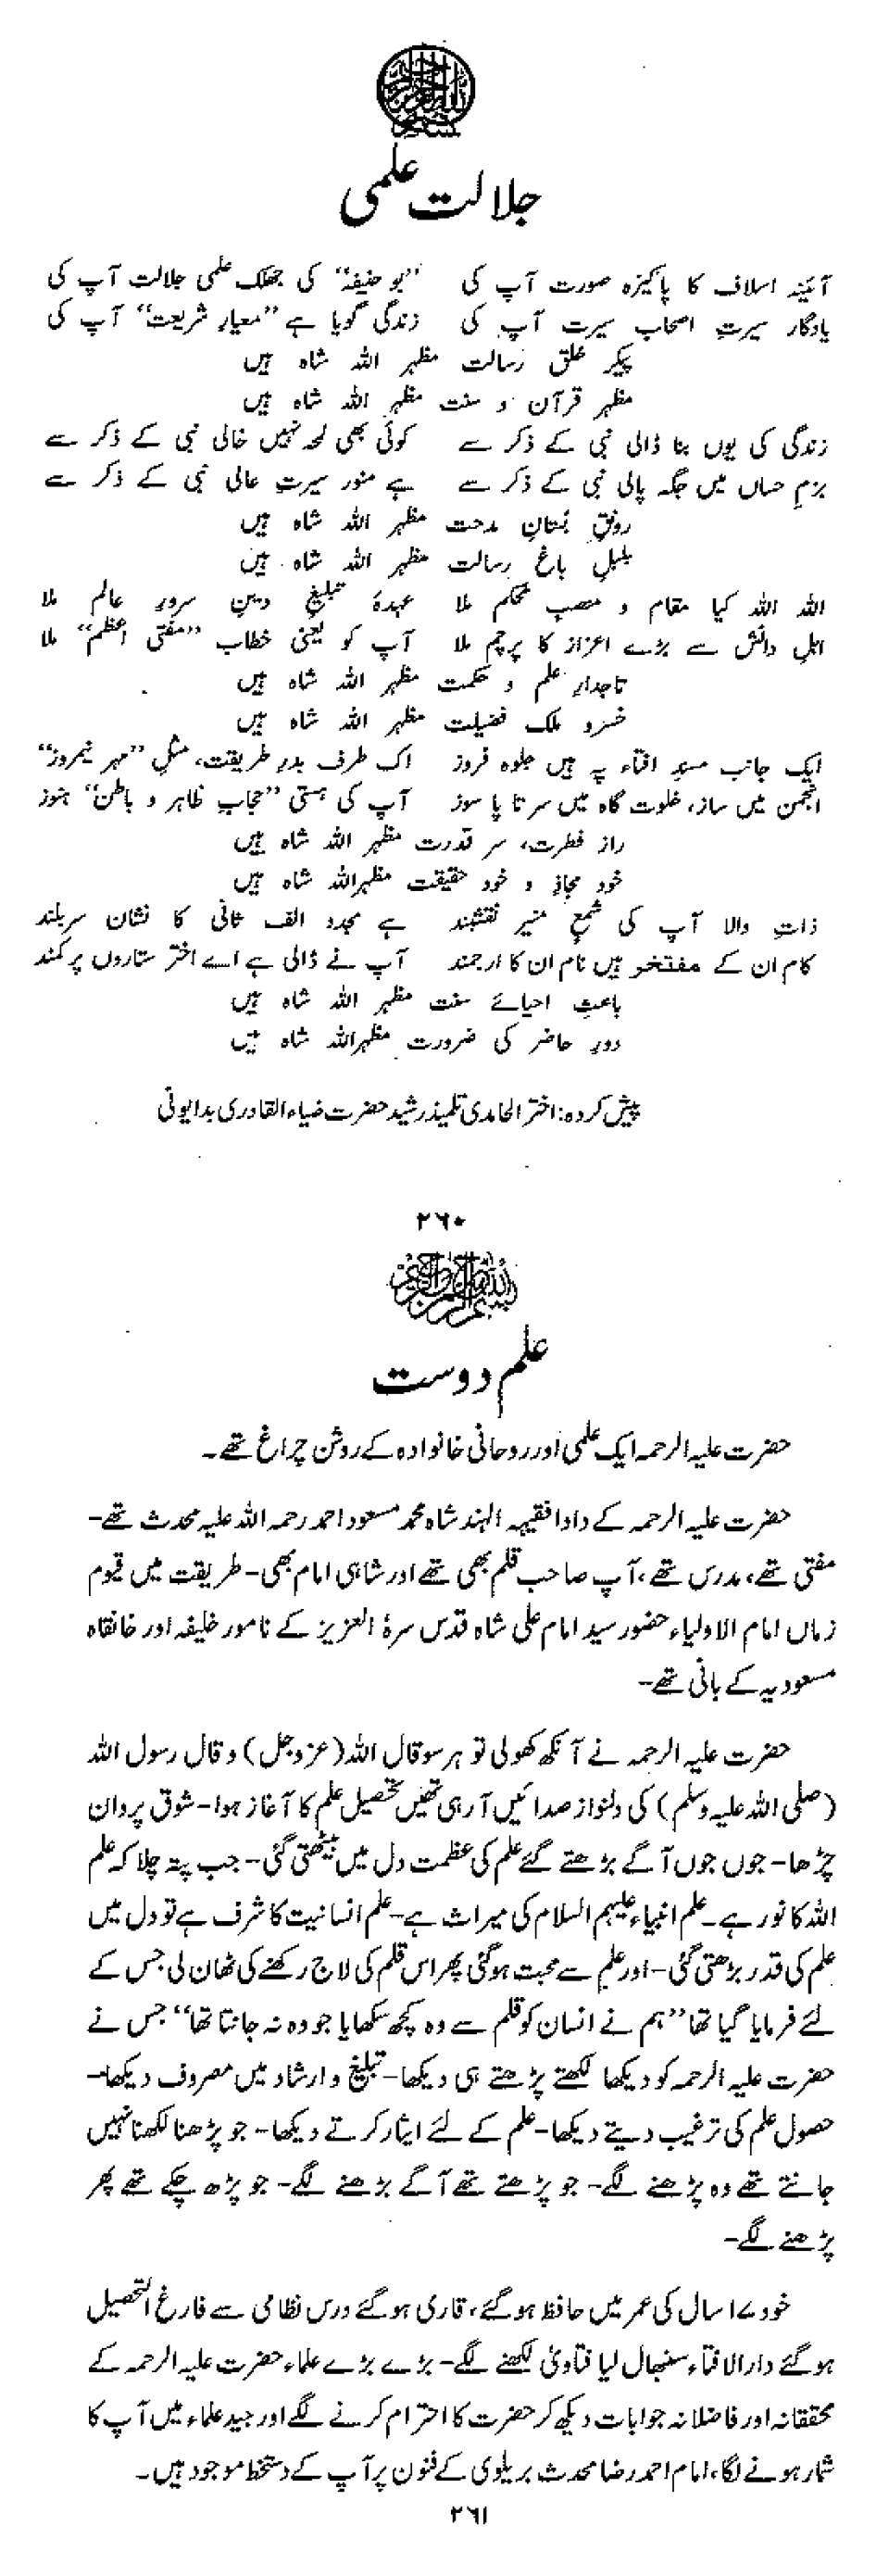 جلالت علمی
آئینہ اسلاف کا پاکیزہ صورت آپ کی ”بو حنیفہ“ کی جھلک علمی جلالت آپ کی
یادگار سیرتِ اصحاب سیرت آپ کی زندگی گویا ہے ”معیارِ شریعت“ آپ کی
پیکر خلق رسالت مظہر اللہ شاہ ہیں
مظہر قرآن و سنت مظہر اللہ شاہ ہیں
زندگی کی یوں بنا ڈالی نبی کے ذکر سے کوئی بھی لمحہ نہیں خالی نبی کے ذکر سے
بزمِ حساں میں جگہ پالی نبی کے ذکر سے ہے منور سیرتِ عالی نبی کے ذکر سے
رونقِ بُستانِ مدحت مظہر اللہ شاہ ہیں
بلبلِ باغِ رسالت مظہر اللہ شاہ ہیں
اللہ اللہ کیا مقام و منصب محکم ملا عہدۂ تبلیغِ دینِ سرورِ عالم ملا
اہلِ دانش سے بڑے اعزاز کا پرچم ملا آپ کو یعنی خطاب ”مفتی اعظم“ ملا
تاجدارِ علم و حکمت مظہر اللہ شاہ ہیں
خسرو ملک فضیلت مظہر اللہ شاہ ہیں
ایک جانب مسندِ افتاء پہ ہیں جلوہ فروز اک طرف بدرِ طریقت، مثلِ ”مہر نیمروز“
انجمن میں ساز، خلوت گاہ میں سر تا پا سوز آپ کی ہستی ”حجابِ ظاہر و باطن“ ہنوز
راز فطرت، سر قدرت مظہر اللہ شاہ ہیں
خود مجاز و خود حقیقت مظہراللہ شاہ ہیں
ذاتِ والا آپ کی شمعِ منیرِ نقشبند ہے مجدد الف ثانی کا نشان سربلند
کام ان کے مفتخر ہیں نام ان کا ارجمند آپ نے ڈالی ہے اے اختر ستاروں پر کمند
باعثِ احیائے سنت مظہر اللہ شاہ ہیں
دورِ حاضر کی ضرورت مظہراللہ شاہ ہیں
پیش کردہ: اختر الحامدی تلمیذ رشید حضرت ضیاء القادری بدایونی
۲۶۰
بسم اللہ الرحمن الرحیم
علم دوست
حضرت علیہ الرحمہ ایک علمی اور روحانی خانوادہ کے روشن چراغ تھے۔
حضرت علیہ الرحمہ کے دادا فقیہہ الہند شاہ محمد مسعود احمد رحمہ اللہ علیہ محدث تھے-
مفتی تھے، مدرس تھے، آپ صاحب قلم بھی تھے اور شاہی امام بھی- طریقت میں قیوم
زماں امام الاولیاء حضور سید امام علی شاہ قدس سرۂ العزیز کے نامور خلیفہ اور خانقاہ
مسعودیہ کے بانی تھے-
حضرت علیہ الرحمہ نے آنکھ کھولی تو ہر سو قال اللہ (عزوجل) و قال رسول اللہ
(صلی اللہ علیہ وسلم) کی دلنواز صدائیں آرہی تھیں تحصیل علم کا آغاز ہوا- شوق پروان
چڑھا- جوں جوں آگے بڑھتے گئے علم کی عظمت دل میں بیٹھتی گئی- جب پتہ چلا کہ علم
اللہ کا نور ہے۔ علم انبیاء علیہم السلام کی میراث ہے- علم انسانیت کا شرف ہے تو دل میں
علم کی قدر بڑھتی گئی- اور علم سے محبت ہوگئی پھر اس قلم کی لاج رکھنے کی ٹھان لی جس کے
لئے فرمایا گیا تھا ”ہم نے انسان کو قلم سے وہ کچھ سکھایا جو وہ نہ جانتا تھا“ جس نے
حضرت علیہ الرحمہ کو دیکھا لکھتے پڑھتے ہی دیکھا- تبلیغ و ارشاد میں مصروف دیکھا-
حصول علم کی ترغیب دیتے دیکھا- علم کے لئے ایثار کرتے دیکھا- جو پڑھنا لکھنا نہیں
جانتے تھے وہ پڑھنے لگے- جو پڑھتے تھے آگے بڑھنے لگے- جو پڑھ چکے تھے پھر
پڑھنے لگے-
خود ۱۷ سال کی عمر میں حافظ ہوگئے، قاری ہوگئے درس نظامی سے فارغ التحصیل
ہوگئے دارالافتاء سنبھال لیا فتاویٰ لکھنے لگے- بڑے بڑے علماء حضرت علیہ الرحمہ کے
محققانہ اور فاضلانہ جوابات دیکھ کر حضرت کا احترام کرنے لگے اور جید علماء میں آپ کا
شمار ہونے لگا، امام احمد رضا محدث بریلوی کے فتون پر آپ کے دستخط موجود ہیں۔
۲۶۱